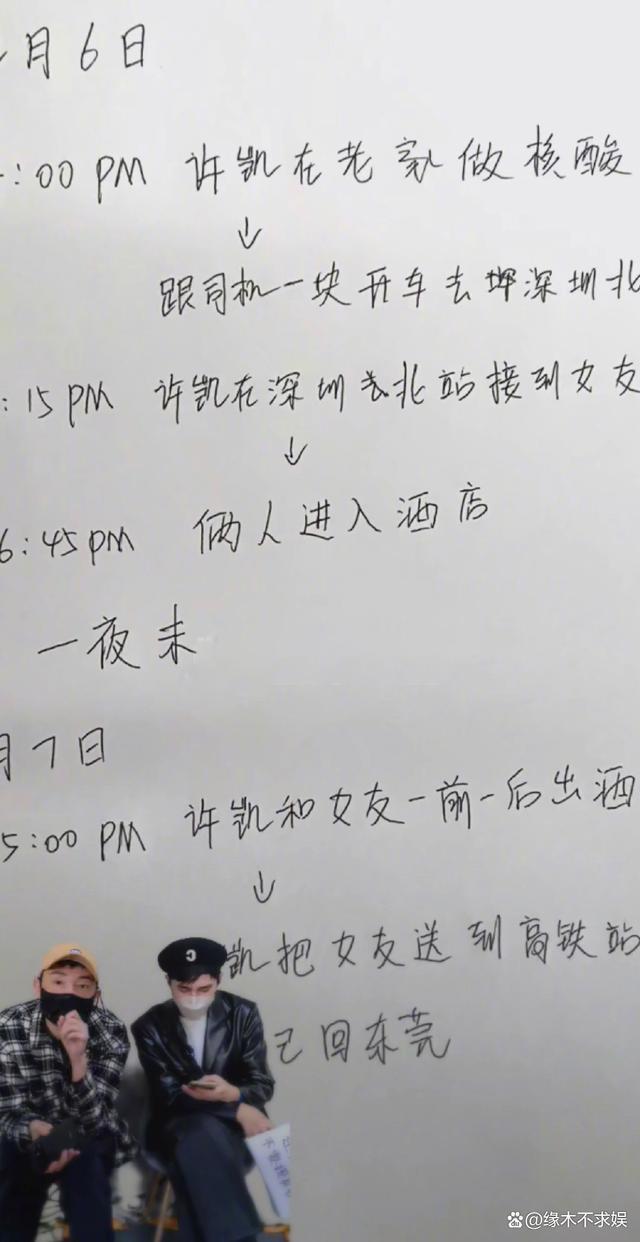 月6日
:00 PM 许凯在老家做核酸
↓
跟司机一块开车去深圳北
:15 PM 许凯在深圳北站接到女友
↓
6:45 PM 俩人进入酒店
一夜未
月7日
5:00 PM 许凯和女友一前一后出酒
↓
凯把女友送到高铁站
己回东莞
C
@缘木不求娱